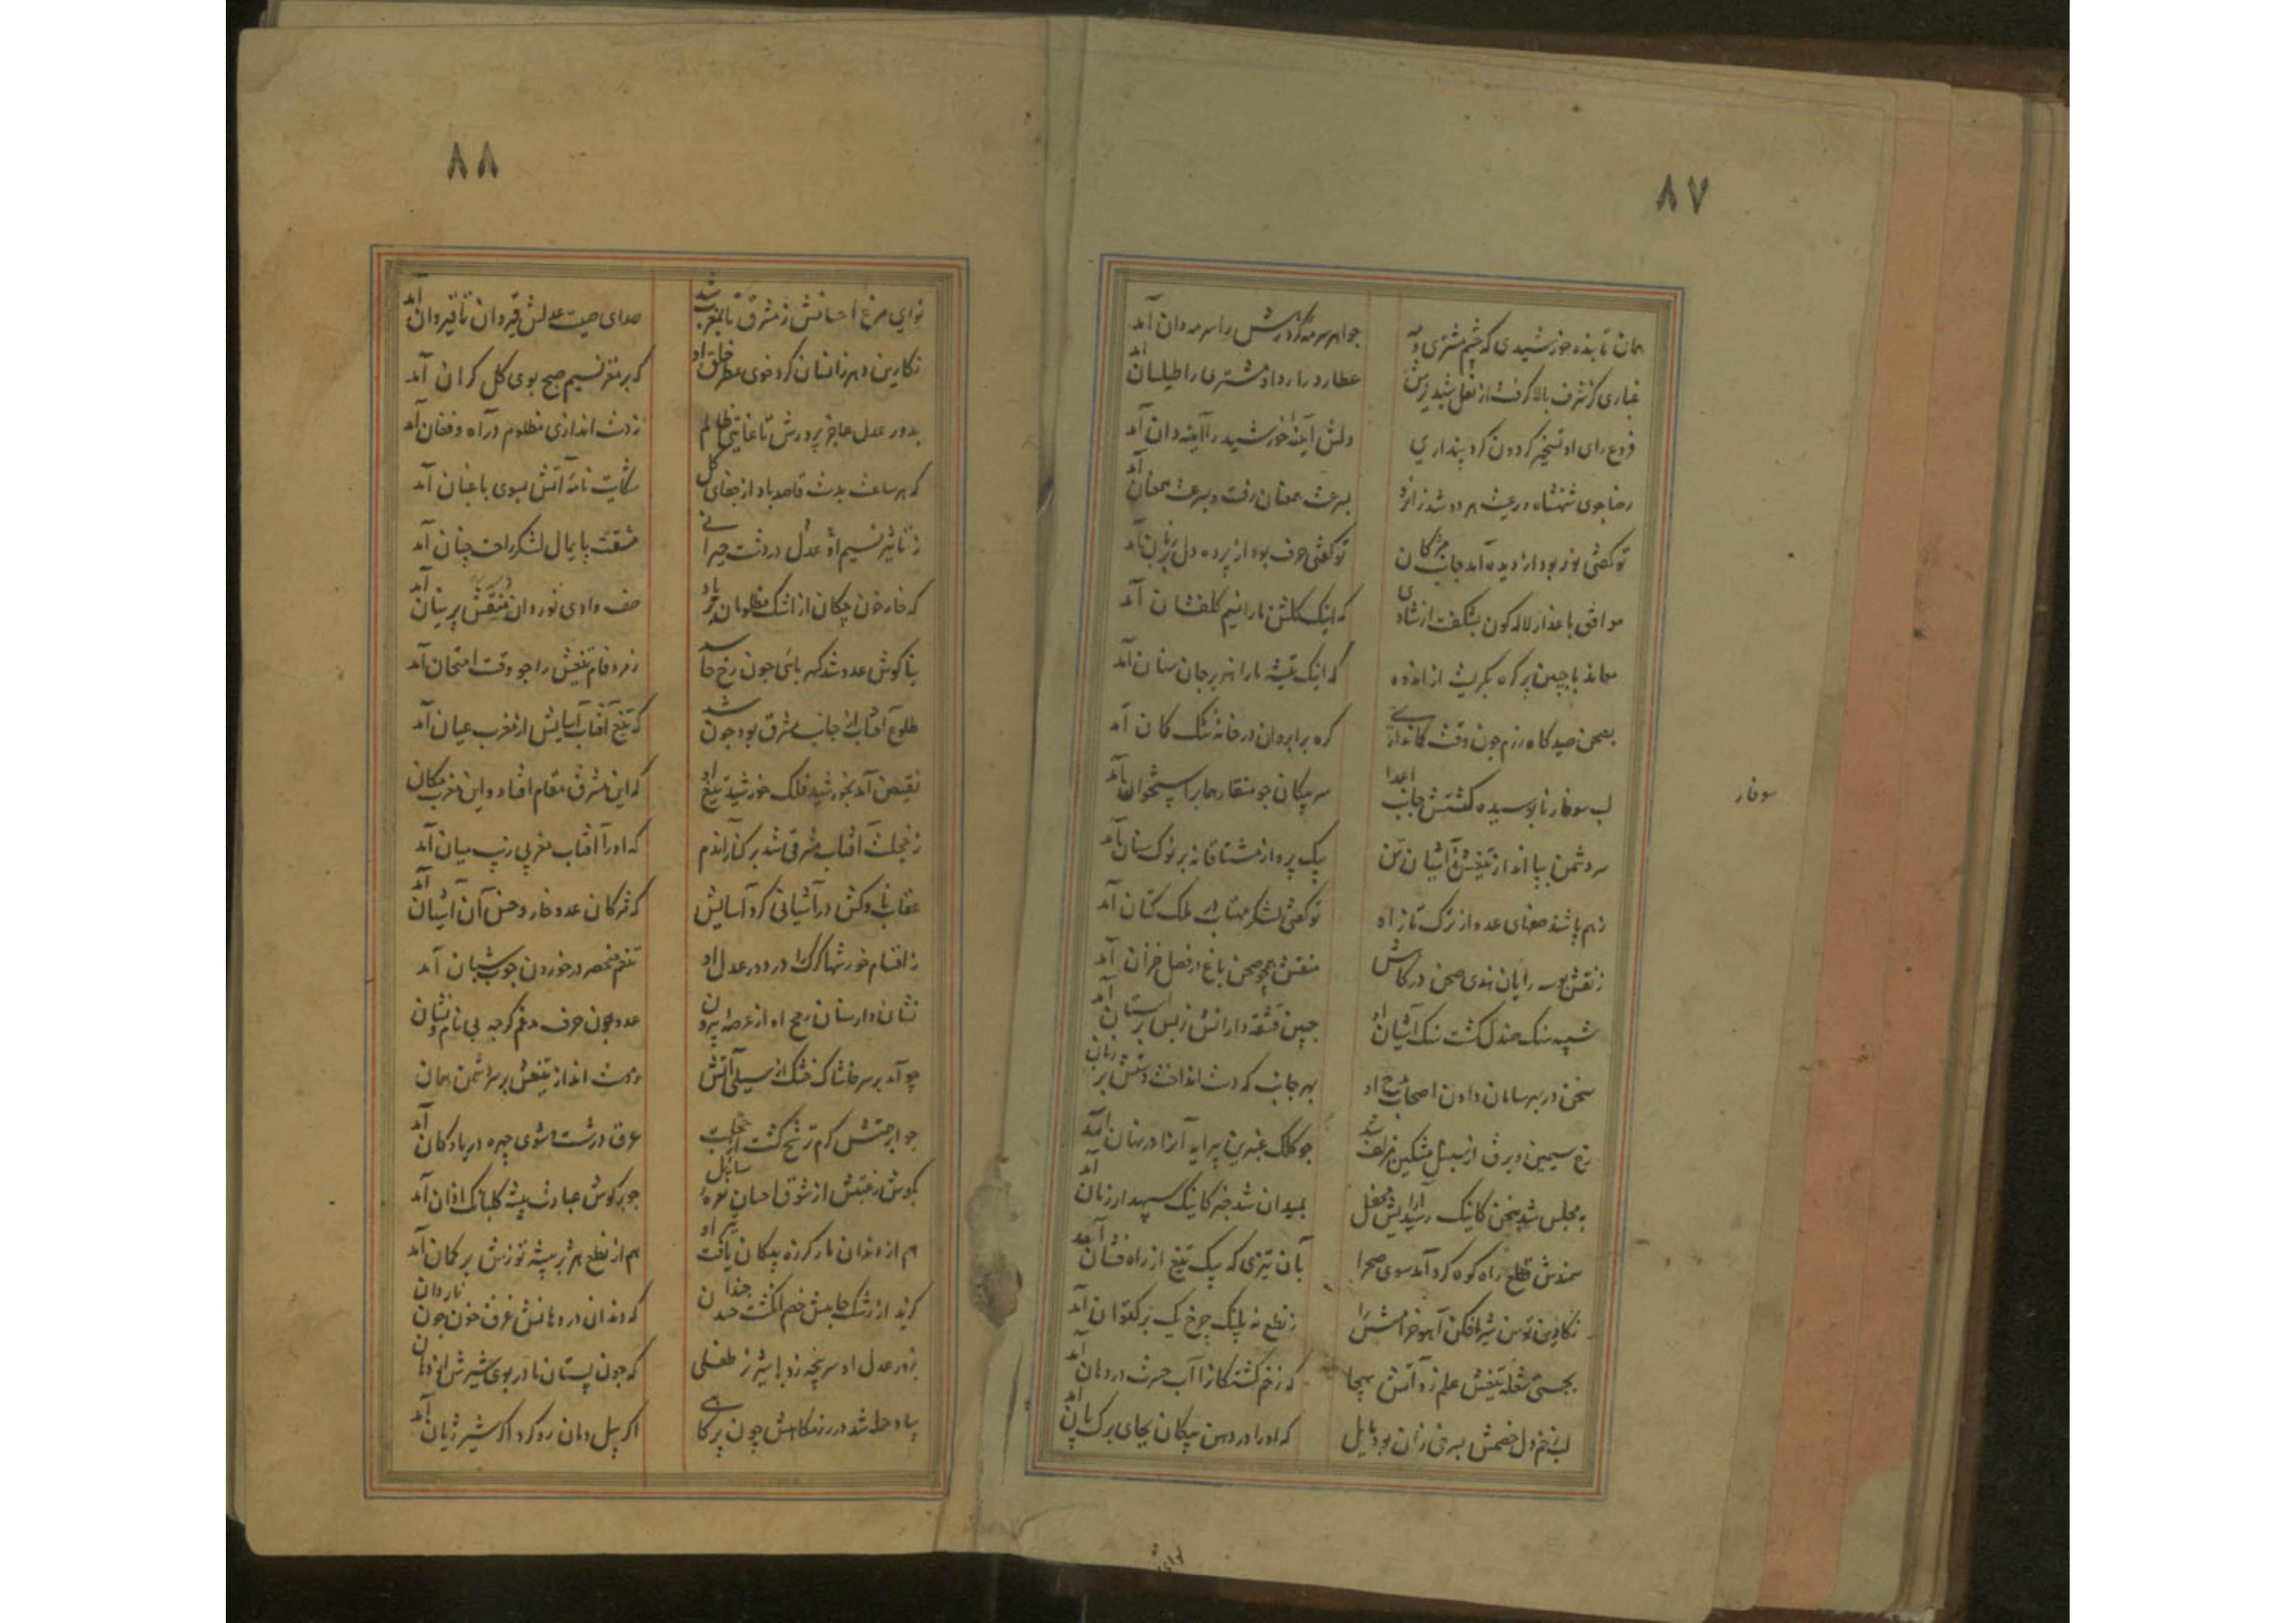 ٨٧
همان تابنده خورشیدی که چشم مشتری و مه
جواهر سرمهٔ گرد رهش را سرمه‌دان آمد
غباری کز شرف بالا گرفت از نعل شبدیزش
عطارد را ردا و مشتری را طیلسان آمد
فروغ رای او تسخیر گردون کرد پنداری
دلش آینهٔ خورشید را آینه‌دان آمد
رضاجوی شهنشاه و رعیت هر دو شد زانرو
بسرعت همعنان رفت و بسرعت همعنان آمد
تو گفتی نور بود از دیده آمد جانب مژگان
تو گفتی حرف بود از پرده دل بر زبان آمد
موافق با عذار لاله‌گون بشکفت از شادی
که اینک گلشن ما را نسیم گلفشان آمد
معاند با جبین پر گره بگریست از اندوه
که اینک بیشه ما را هژبر جان‌ستان آمد
بصحن صیدگاه رزم چون وقت کمانداری
گره بر ابروان در خانه تنگ کمان آمد
لب سوفار نابوسیده گشتش جانب اعدا
سر پیکان چو منقار هما بر استخوان آمد
سوفار
سر دشمن بپا انداز تیغش ز آشیان تن
سبک پرواز مشتاقانه بر نوک سنان آمد
ز هم پاشد صفهای عدو از ترکتاز او
تو گفتی لشکر مهتاب در ملک کتان آمد
ز نقش بوسه رایان هندی صحن درگاهش
منقش همچو صحن باغ در فصل خزان آمد
شبیه سنگ صندل گشت سنگ آستان او
جبین قشقه‌دارانش ز بس بر آستان آمد
سخن در بهر سامان دادن اصحاب او
بهر جانب که دست انداخت
رخ سیمین ورق از سنبل مشکین مزلف شد
چو کلک عنبرین پیرایه آنرا در بنان آمد
به مجلس شد سخن کاینک رسید آرایش محفل
بمیدان شد خبر کاینک سپهدار زمان آمد
سمندش قطع راه کوه کرد آمد سوی صحرا
بآن تیزی که پیک تیغ از راه فسان آمد
نگارین توسن شیر افکن آهو خرامش را
ز نطع نه پلنگ چرخ یک برگستوان آمد
بجستی شعله تیغش علم زد آتش هیجا
که زخم کشتگانرا آب حسرت در دهان آمد
لب زخم دل خصمش بسرخی زان بود مایل
که او را در دهن پیکان بجای برگ پان آمد
٨٨
نوای مرغ احسانش ز مشرق تا بمغرب شد
صدای صیت عدلش قیروان تا قیروان آمد
نگارین دهر زانسان کرد خوی عطر خلق او
که بر مغز نسیم صبح بوی گل گران آمد
بدور عدل عاجز پرورش تا غایتی ظالم
ز دست اندازی مظلوم در آه و فغان آمد
که هر ساعت بدست قاصد باد از جفای گل
شکایت نامهٔ آتش بسوی باغبان آمد
ز تاثیر نسیم او عدل در دشت حیرانی
مشقت پایمال لشکر راحت چنان آمد
که خار خون چکان از اشک مظلومان
صف وادی نوردان منقش پرنیان آمد
بناگوش عدو شد کهربائی چون رخ حاسد
زمرد فام تیغش را چو وقت امتحان آمد
طلوع آفتاب از جانب مشرق بود چون شد
که تیغ آفتاب آسایش از مغرب عیان آمد
نقیض آمد بخورشید فلک خورشید تیغ او
که این مشرق مقام افتاد و این مغرب مکان
ز خجلت آفتاب مشرقی شد بر کنار آندم
که او را آفتاب مغربی زیب میان آمد
عقاب ناوکش در آشیانی کرد آسایش
که مژگان عدو خار و خس آن آشیان آمد
ز اقسام خورشها گرگ را در دور عدل او
تنعم منحصر در خوردن چوب شبان آمد
نشان دار سنان رمح او از عرصه بیرون
عدو چون حرف مدغم گرچه بی نام و نشان
چو آمد بر سر خاشاک خشک از سیلی آتش
ز دست انداز تیغش بر سر دشمن همان آمد
چو ابر همتش گرم ترشح گشت از خجلت
عرق در شست و شوی چهره دریا و کان آمد
بگوش رغبتش از شوق احسان نعرهٔ سائل
چو بر گوش عبادت پیشه گلبانگ اذان آمد
هم از دندان مار گرزه پیکان یافت تیر او
هم از نطع هژبر بیشه توزش بر کمان آمد
گزید از رشک جاهش خصم انگشت حسد چندان
که دندان در دهانش غرق خون چون ناردان
بدور عدل او سرپنجه زد با شیر نر طفلی
که چون پستان مادر بوی شیرش از دهان
بباد حمله شد در رزمگاهش چون پر کاهی
اگر پیل دمان رو کرد اگر شیر ژیان آمد